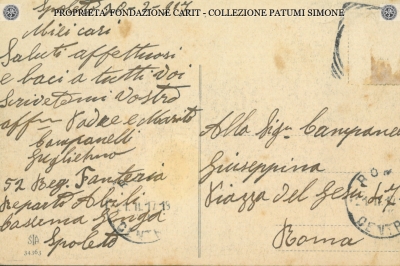 PROPRIETÀ FONDAZIONE CARIT - COLLEZIONE PATUMI SIMONE
Miei cari
Saluti affettuosi
e baci a tutti voi
Scrivetemi Vostro
aff.mo Padre e marito
Campanelli
Guglielmo
52 Reg. Fanteria
Reparto Abili
Caserma
Spoleto
Alla Sig.ra Campanelli
Giuseppina
Piazza del Gesù
Roma